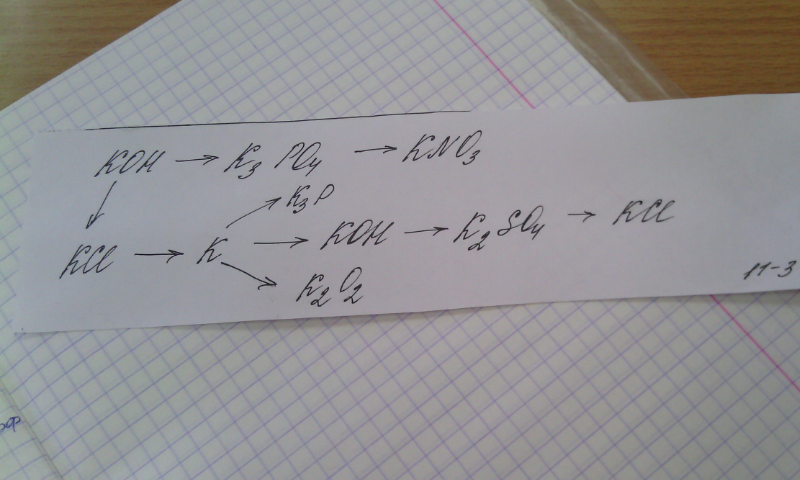 KOH → K3PO4 → KNO3
↓
K3P
KCl → K → KOH → K2SO4 → KCl
K2O2
11-3